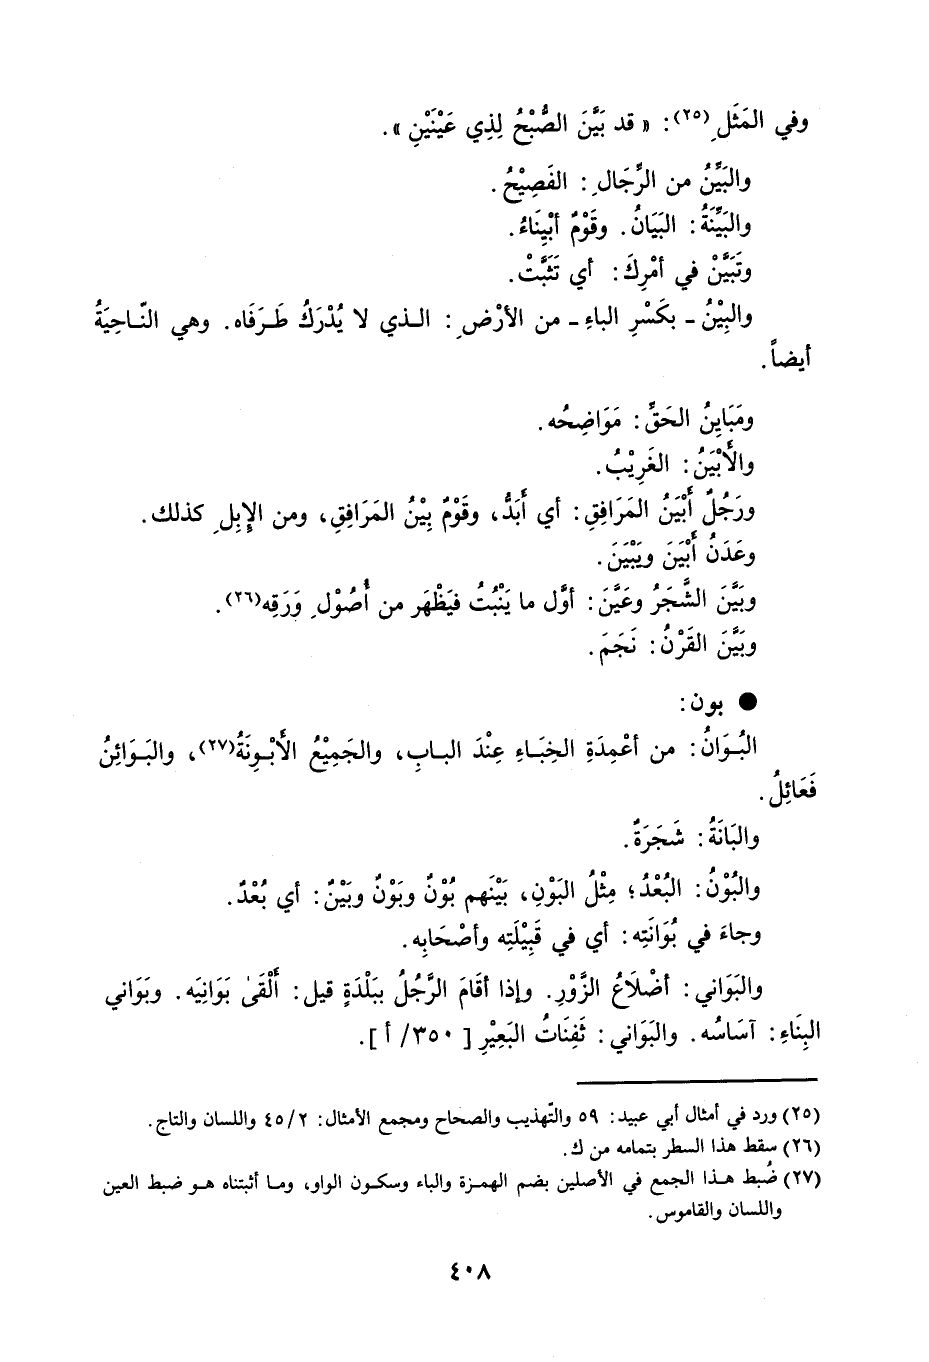 وفي المَثَلِ(٢٥): « قد بَيَّنَ الصُّبْحُ لِذِي عَيْنَيْنِ ».
والبَيِّنُ من الرِّجَالِ: الفَصِيْحُ.
والبَيِّنَةُ: البَيَانُ. وقَوْمٌ أبْيِنَاءُ.
وتَبَيَّنْ في أمْرِكَ: أي تَثَبَّتْ.
والبِيْنُ ـ بكَسْرِ الباءِ ـ من الأرْضِ: الـذي لا يُدْرَكُ طَـرَفَاه. وهي النّـاحِيَةُ
أيضاً.
ومَبَايِنُ الحَقِّ: مَوَاضِحُه.
والأَبْيَنُ: الغَرِيْبُ.
ورَجُلٌ أَبْيَنُ المَرَافِقِ: أي أَبَدُّ، وقَوْمٌ بِيْنُ المَرَافِقِ، ومن الإِبِلِ كذلك.
وعَدَنُ أَبْيَنَ ويَبْيَنَ.
وبَيَّنَ الشَّجَرُ وعَيَّنَ: أوَّل ما يَنْبُتُ فيَظْهَر من أُصُوْلِ وَرَقِه(٢٦).
وبَيَّنَ القَرْنُ: نَجَمَ.
● بون:
البُـوَانُ: من أعْمِدَةِ الخِبَـاءِ عِنْدَ البـابِ، والجَمِيْعُ الأَبْـوِنَةُ(٢٧)، والبَـوَائِنُ
فَعَائِلُ.
والبَانَةُ: شَجَرَةٌ.
والبُوْنُ: البُعْدُ؛ مِثْلُ البَوْنِ، بَيْنَهم بُوْنٌ وبَوْنٌ وبَيْنٌ: أي بُعْدٌ.
وجاءَ في بُوَانَتِه: أي في قَبِيْلَتِه وأصْحَابِه.
والبَوَاني: أضْلَاعُ الزَّوْرِ. وإذا أقَامَ الرَّجُلُ ببَلْدَةٍ قيل: أَلْقَىٰ بَوَانِيَه. وبَوَاني
البِنَاءِ: آسَاسُه. والبَوَاني: ثَفِنَاتُ البَعِيْرِ [ ٣٥٠/ أ ].
(٢٥) ورد في أمثال أبي عبيد: ٥٩ والتّهذيب والصحاح ومجمع الأمثال: ٤٥/٢ واللسان والتاج.
(٢٦) سقط هذا السطر بتمامه من ك.
(٢٧) ضُبط هـذا الجمع في الأصلين بضم الهمـزة والباء وسكـون الواو، ومـا أثبتناه هـو ضبط العين
واللسان والقاموس.
٤٠٨